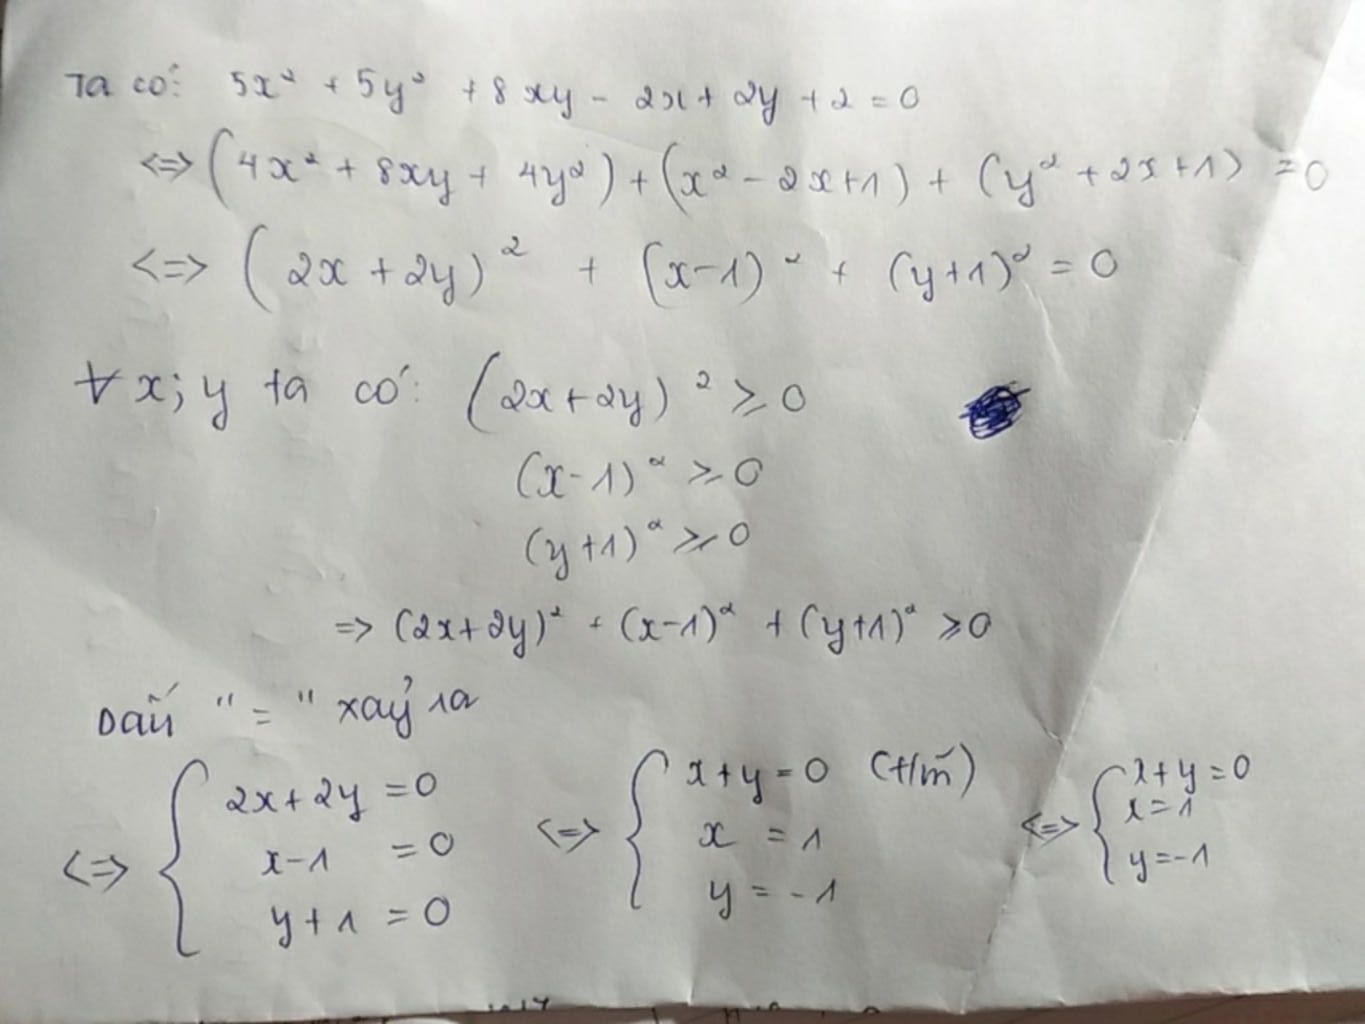 Ta có: 5x² + 5y² + 8xy - 2x + 2y + 2 = 0
<=> (4x² + 8xy + 4y²) + (x² - 2x + 1) + (y² + 2x + 1) = 0
<=> (2x + 2y)² + (x - 1)² + (y + 1)² = 0
∀ x; y ta có: (2x + 2y)² ≥ 0
(x - 1)² ≥ 0
(y + 1)² ≥ 0
=> (2x + 2y)² + (x - 1)² + (y + 1)² ≥ 0
Dấu "=" xảy ra
<=> { 2x + 2y = 0 <=> { x + y = 0 (t/m) <=> { x + y = 0
x - 1 = 0 x = 1 x = 1
y + 1 = 0 y = -1 y = -1